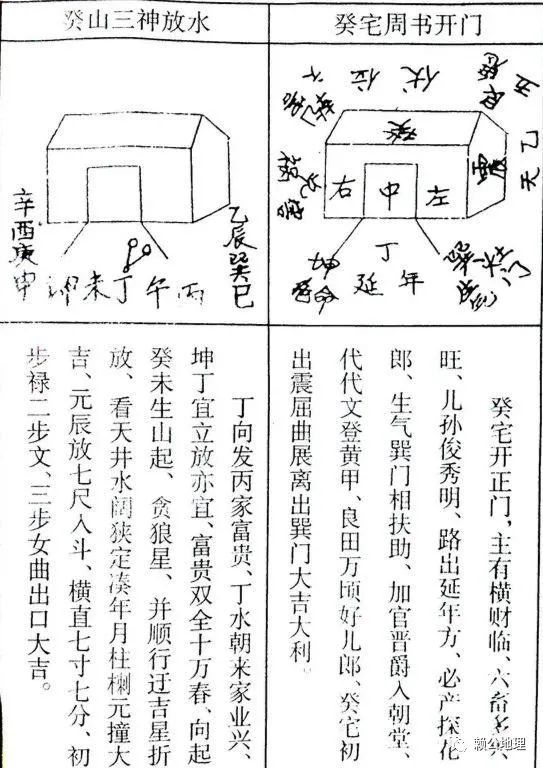 癸宅周书开门
伏
位
癸
右
中
左
丁
延年
天乙
五
癸宅开正门、主有横财临、六畜兴
旺、儿孙俊秀明、路出延年方、必产探花
郎、生气巽门相扶助、加官晋爵入朝堂、
代代文登黄甲、良田万顷好儿郎、癸宅初
出震屈曲展离出巽门大吉大利。
癸山三神放水
乙辰巽巳
丙
午
丁
未
坤
申
庚
酉
辛
丁向发丙家富贵、丁水朝来家业兴、
坤丁宜立放亦宜、富贵双全十万春、向起
癸未生山起、贪狼星、并顺行迂吉星折
放、看天井水阔狭定凑年月柱楋元撞大
吉、元辰放七尺入斗、横直七寸七分、初
步禄二步文、三步女曲出口大吉。
赖公地理